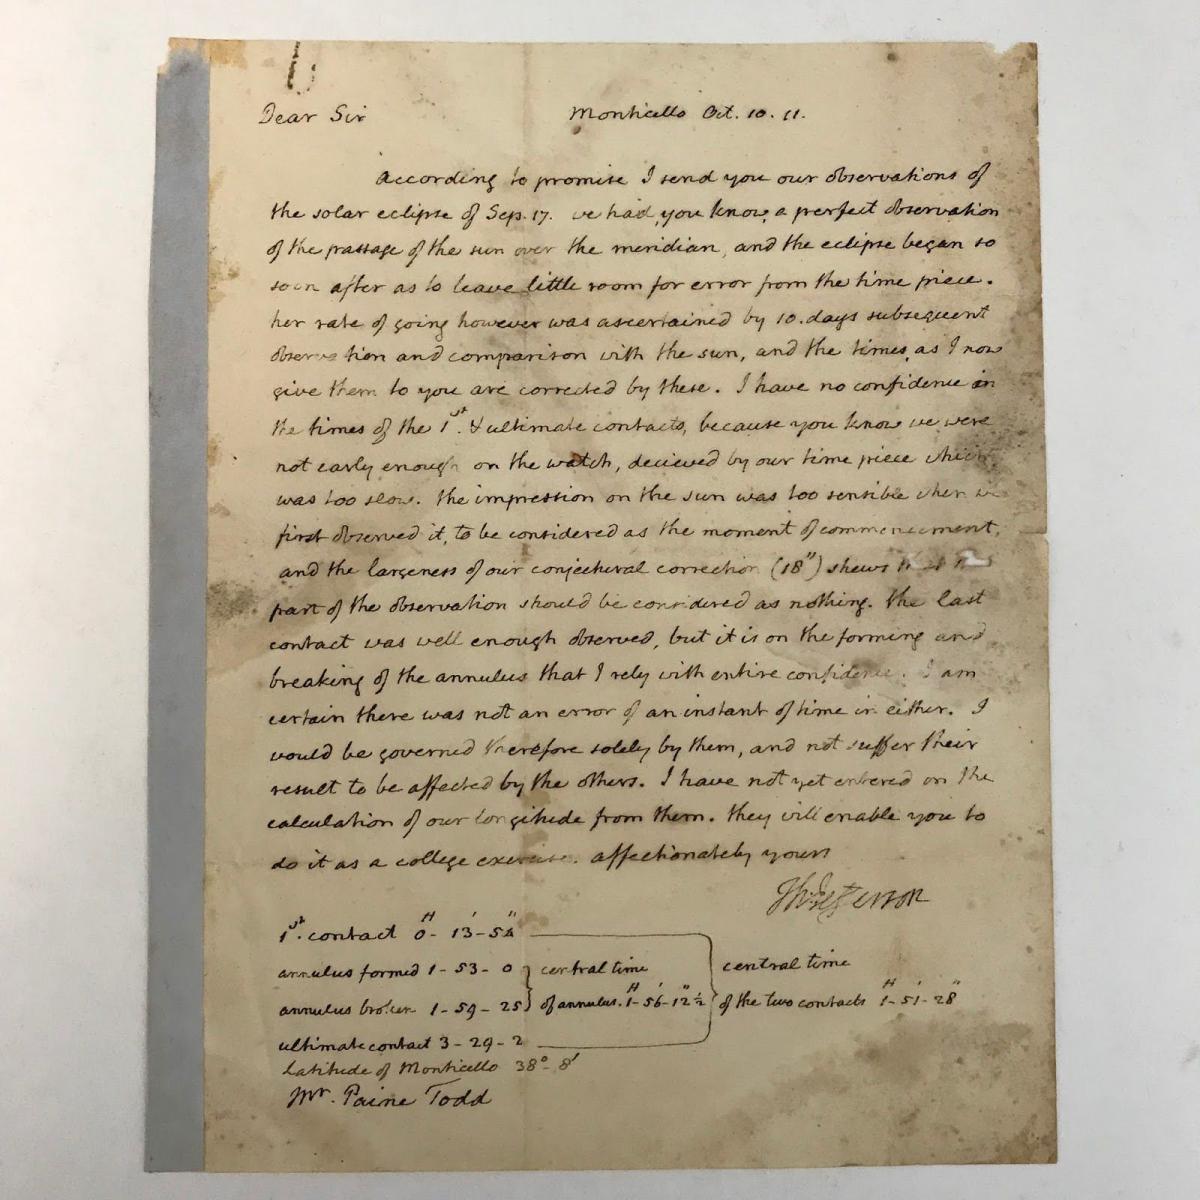 Dear Sir Monticello Oct. 10. 11.
According to promise I send you our observations of
the solar eclipse of Sep. 17. we had, you know, a perfect observation
of the passage of the sun over the meridian, and the eclipse began so
soon after as to leave little room for error from the time piece.
her rate of going however was ascertained by 10. days subsequent
observation and comparison with the sun, and the times, as I now
give them to you are corrected by these. I have no confidence in
the times of the 1st. & ultimate contacts, because you know we were
not early enough on the watch, decieved by our time piece which
was too slow. the impression on the sun was too sensible when we
first observed it, to be considered as the moment of commencement,
and the largeness of our conjectural correction (18") shews that
part of the observation should be considered as nothing. the last
contact was well enough observed, but it is on the forming and
breaking of the annulus that I rely with entire confidence. I am
certain there was not an error of an instant of time in either. I
would be governed therefore solely by them, and not suffer their
result to be affected by the others. I have not yet entered on the
calculation of our longitude from them. they will enable you to
do it as a college exercise. affectionately yours
Th: Jefferson
1st. contact 0H- 13'- 54"
annulus formed 1 - 53 - 0 central time central time
annulus broken 1 - 59 - 25 of annulus. 1H- 56'- 12"½ of the two contacts 1H- 51'- 28"
ultimate contact 3 - 29 - 2
Latitude of Monticello 38°- 8'
Mr. Paine Todd